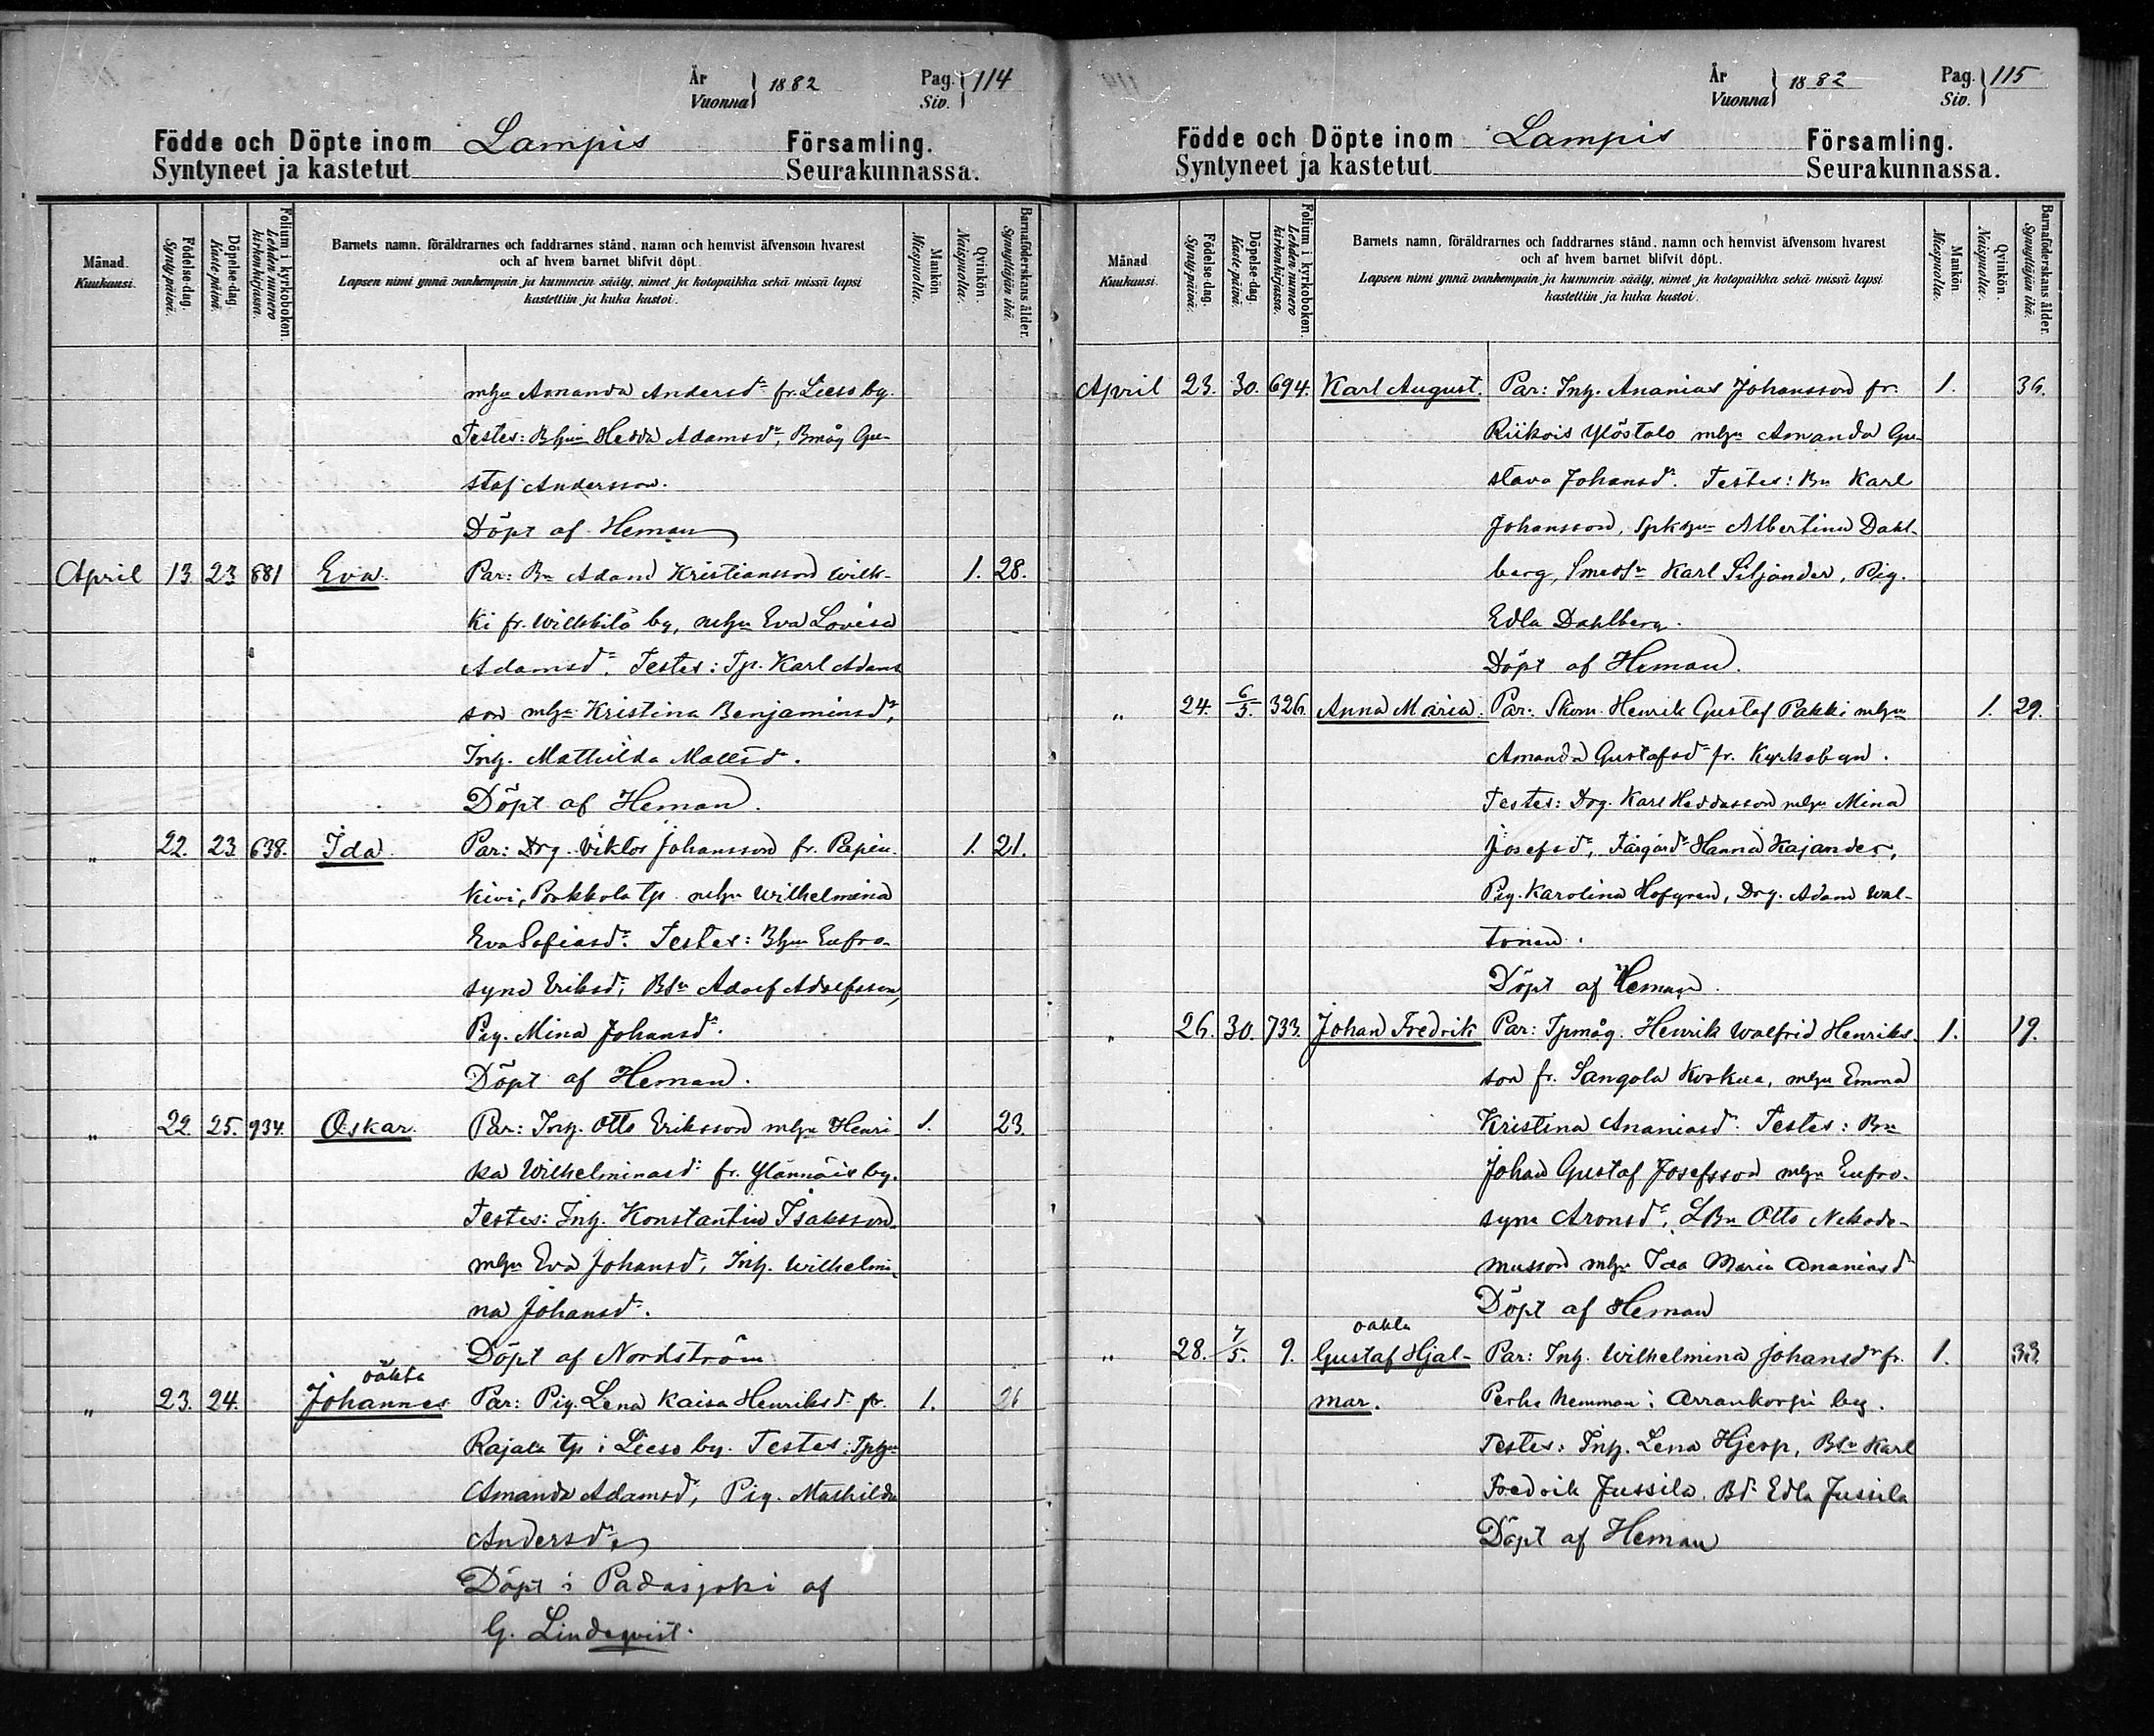 År
Vuonna } 1882
Pag.
Siv. } 114
Födde och Döpte inom Lampis Församling.
Syntyneet ja kastetut Seurakunnassa.
Månad.
Kuukausi.
Födelse-dag.
Synty-päivä.
Döpelse-dag.
Kaste-päivä.
Folium i kyrkoboken.
Lehden numero kirkonkirjassa.
Barnets namn, föräldrarnes och faddrarnes stånd, namn och hemvist äfvensom hvarest
och af hvem barnet blifvit döpt.
Lapsen nimi ynnä vanhempain ja kummein sääty, nimet ja kotopaikka sekä missä lapsi
kastettiin ja kuka kastoi.
Mankön.
Miespuolia.
Qvinkön.
Naispuolia.
Barnaföderskans ålder.
Synnyttäjän ikä.
mhu Amanda Andersdr fr. Lieso by.
Testes: Bhu Hedda Adamsdr, Bmåg Gu-
staf Andersson.
Döpt af Heman
April 13. 23 881 Eva. Par: Bn Adam Kristiansson Wilk- 1. 28.
ki fr. Wilkkilä by, mhu Eva Lovisa
Adamsdr. Testes: Tp. Karl Adams
son mhu Kristina Benjaminsdr,
Inh. Mathilda Mattsdr.
Döpt af Heman.
" 22. 23. 638. Ida. Par: Drg. Viktor Johansson fr. Papin- 1. 21.
kivi, Pokkola tp mhu Wilhelmina
Eva Sofiasdr. Testes: Bhu Eufro-
syne Eriksdr, Bsn Adolf Adolfsson,
Pig. Mina Johansdr.
Döpt af Heman.
" 22. 25. 934. Oskar. Par: Inh. Otto Eriksson mhu Henri- 1. 23.
ka Wilhelminasdr fr. Ylännäis by.
Testes: Inh. Konstantin Isaksson
mhu Eva Johansdr, Inh. Wilhelmi-
na Johansdr.
Döpt af Nordström
oäkta
" 23. 24. Johannes Par: Pig. Lena Kaisa Henriksdr fr. 1. 26
Rajala tp i Lieso by. Testes: Tphu
Amanda Adamsdr, Pig. Mathilda
Andersdr
Döpt i Padasjoki af
G. Lindeqvist.
År
Vuonna } 1882
Pag.
Siv. } 115
Födde och Döpte inom Lampis Församling.
Syntyneet ja kastetut Seurakunnassa.
Månad
Kuukausi.
Födelse-dag.
Synty-päivä.
Döpelse-dag.
Kaste-päivä.
Folium i kyrkoboken.
Lehden numero kirkonkirjassa.
Barnets namn, föräldrarnes och faddrarnes stånd, namn och hemvist äfvensom hvarest
och af hvem barnet blifvit döpt.
Lapsen nimi ynnä vanhempain ja kummein sääty, nimet ja kotopaikka sekä missä lapsi
kastettiin ja kuka kastoi.
Mankön
Miespuolia.
Qvinkön.
Naispuolia.
Barnaföderskans ålder.
Synnyttäjän ikä.
April 23. 30. 694. Karl August. Par: Inh. Ananias Johansson fr. 1. 36.
Riikois Ylöstalo mhu Amanda Gu-
stava Johansdr. Testes: Bn Karl
Johansson, Albertina Dahl-
berg, Karl Siljander, Pig.
Edla Dahlberg.
Döpt af Heman.
" 24. 6/5. 326. Anna Maria. Par: Skom. Henrik Gustaf Pakki mhu 1. 29.
Amanda Gustafsdr fr. Kyrkobyn.
Testes: Drg. Karl Heddasson mhu Mina
Josefsdr, Färgardr Hanna Kajander,
Pig. Karolina Hofgren, Drg. Adam Wal-
tonen.
Döpt af Heman.
" 26. 30. 733. Johan Fredrik Par: Tpmåg. Henrik Walfrid Henriks- 1. 19.
son fr. Sangola Koskue, mhu Emma
Kristina Ananiasdr. Testes: Bn
Johan Gustaf Josefsson mhu Eufro-
syne Aronsdr, LBn Otto Nekode-
musson mhu Ida Maria Ananiasdr
Döpt af Heman
oäkta
" 28. 7/5. 9. Gustaf Hjal- Par: Inh. Wilhelmina Johansdr fr. 1. 33.
mar. Perhe Nemman i Arrankorpi by.
Testes: Inh. Lena Hjerp, Bsn Karl
Fredrik Jussila, Bdr Edla Jussila
Döpt af Heman